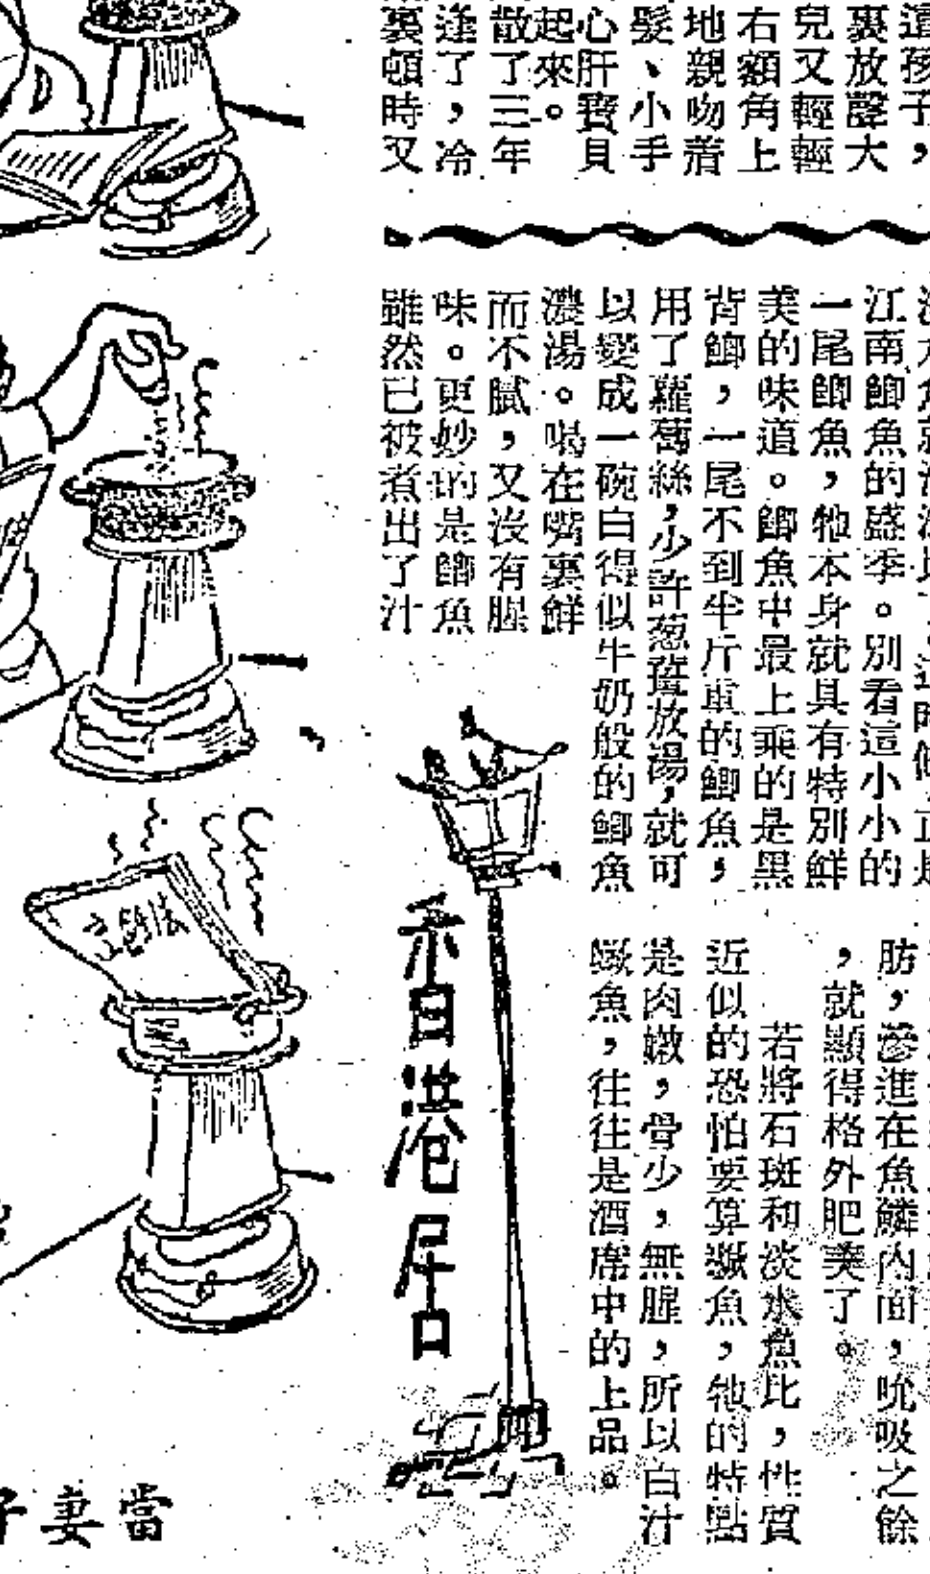 孩子,
裏放聲大
兒又輕輕
右額角上
地親吻着
髮、小手
心肝寶貝
起來。
散了三年
逢了,冷
裏頓時又
江南鯽魚的盛季。別看這小小的
一尾鯽魚,牠本身就具有特別鮮
美的味道。鯽魚中最上乘的是黑
背鯽,一尾不到半斤重的鯽魚,
用了蘿蔔絲,少許葱薑放湯,就可
以變成一碗白得似牛奶般的鯽魚
濃湯。喝在嘴裏鮮
而不膩,又沒有腥
味。更妙的是鯽魚
雖然已被煮出了汁
肪,滲進在魚鱗內面,吮吸之餘
,就顯得格外肥美了。
若將石斑和淡水魚比,性質
近似的恐怕要算鱖魚,牠的特點
是肉嫩,骨少,無腥,所以白汁
鱖魚,往往是酒席中的上品。
香港居
當妻子